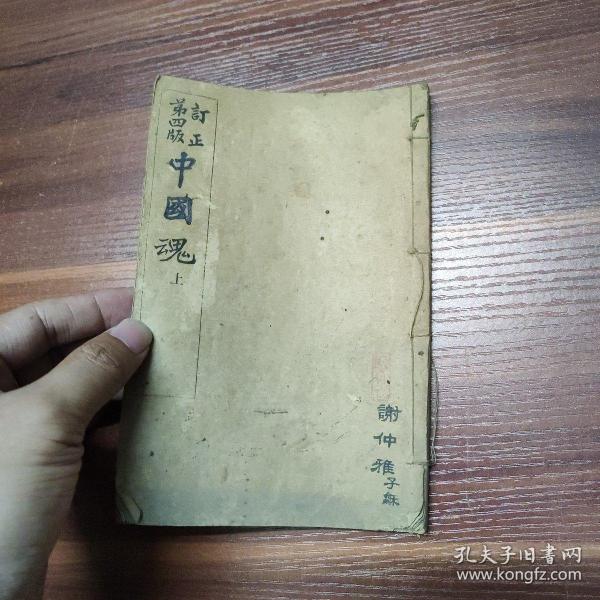 訂正
第四版
中國魂
上
謝仲雅
孔夫子旧书网
www.kongfz.com